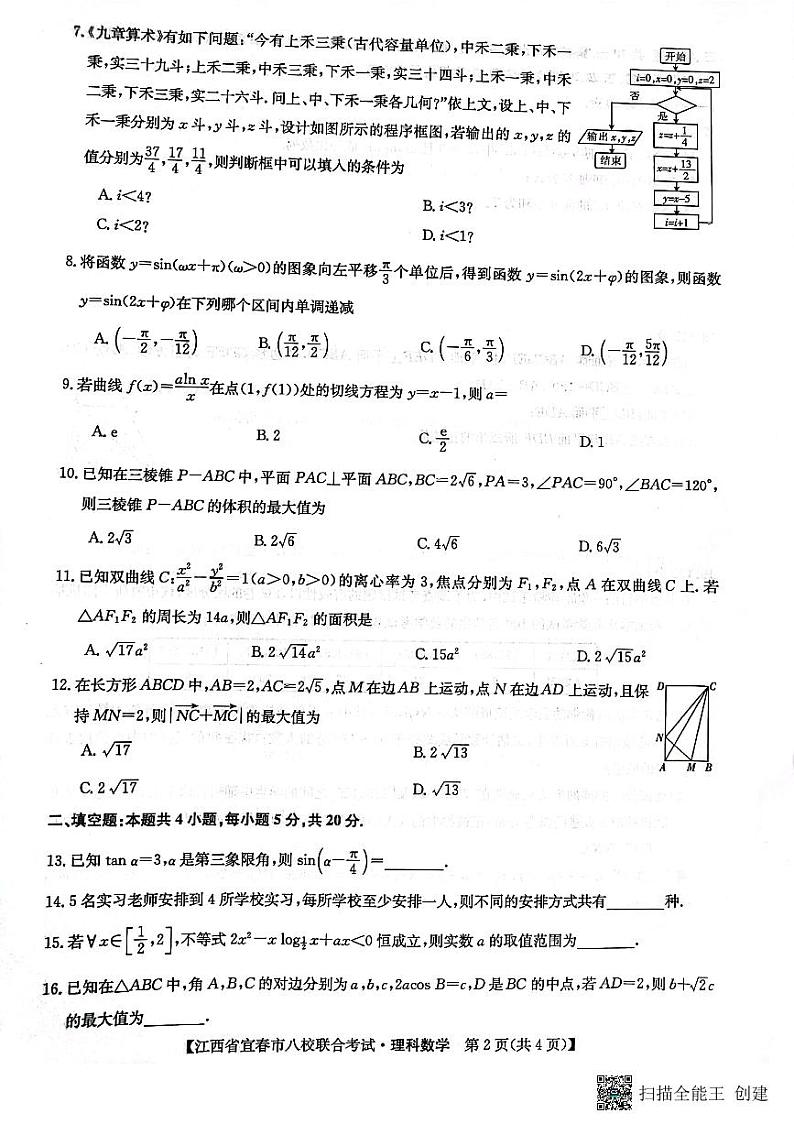 7.《九章算术》有如下问题:“今有上禾三秉(古代容量单位),中禾二秉,下禾一
秉,实三十九斗;上禾二秉,中禾三秉,下禾一秉,实三十四斗;上禾一秉,中禾
二秉,下禾三秉,实二十六斗.问上、中、下禾一秉各几何?”依上文,设上、中、下
禾一秉分别为 x 斗,y 斗,z 斗,设计如图所示的程序框图,若输出的 x,y,z 的
值分别为37/4,17/4,11/4,则判断框中可以填入的条件为
A. i<4?
B. i<3?
C. i<2?
D. i<1?
开始
i=0,x=0,y=0,z=2
否
是
输出 x,y,z
结束
z=z+1/4
x=z+13/2
y=x-5
i=i+1
8.将函数 y=sin(ωx+π)(ω>0)的图象向左平移π/3个单位后,得到函数 y=sin(2x+φ)的图象,则函数
y=sin(2x+φ)在下列哪个区间内单调递减
A. (-π/2,-π/12) B. (π/12,π/2) C. (-π/6,π/3) D. (-π/12,5π/12)
9.若曲线 f(x)=aln x/x在点(1,f(1))处的切线方程为 y=x-1,则 a=
A. e B. 2 C. e/2 D. 1
10.已知在三棱锥 P-ABC 中,平面 PAC⊥平面 ABC,BC=2√6,PA=3,∠PAC=90°,∠BAC=120°,
则三棱锥 P-ABC 的体积的最大值为
A. 2√3 B. 2√6 C. 4√6 D. 6√3
11.已知双曲线 C:x²/a²-y²/b²=1(a>0,b>0)的离心率为 3,焦点分别为 F₁,F₂,点 A 在双曲线 C 上.若
△AF₁F₂ 的周长为 14a,则△AF₁F₂ 的面积是
A. √17a² B. 2√14a² C. 15a² D. 2√15a²
12.在长方形 ABCD 中,AB=2,AC=2√5,点 M 在边 AB 上运动,点 N 在边 AD 上运动,且保
持 MN=2,则|NC+MC|的最大值为
A. √17
B. 2√13
C. 2√17
D. √13
D
C
N
A
M
B
二、填空题:本题共 4 小题,每小题 5 分,共 20 分.
13.已知 tan α=3,α是第三象限角,则 sin(α-π/4)=______.
14. 5 名实习老师安排到 4 所学校实习,每所学校至少安排一人,则不同的安排方式共有______种.
15.若∀x∈[1/2,2],不等式 2x²-xlog½x+ax<0 恒成立,则实数 a 的取值范围为______.
16.已知在△ABC 中,角 A,B,C 的对边分别为 a,b,c,2acos B=c,D 是 BC 的中点,若 AD=2,则 b+√2c
的最大值为______.
【江西省宜春市八校联合考试·理科数学 第 2 页(共 4 页)】
扫描全能王 创建